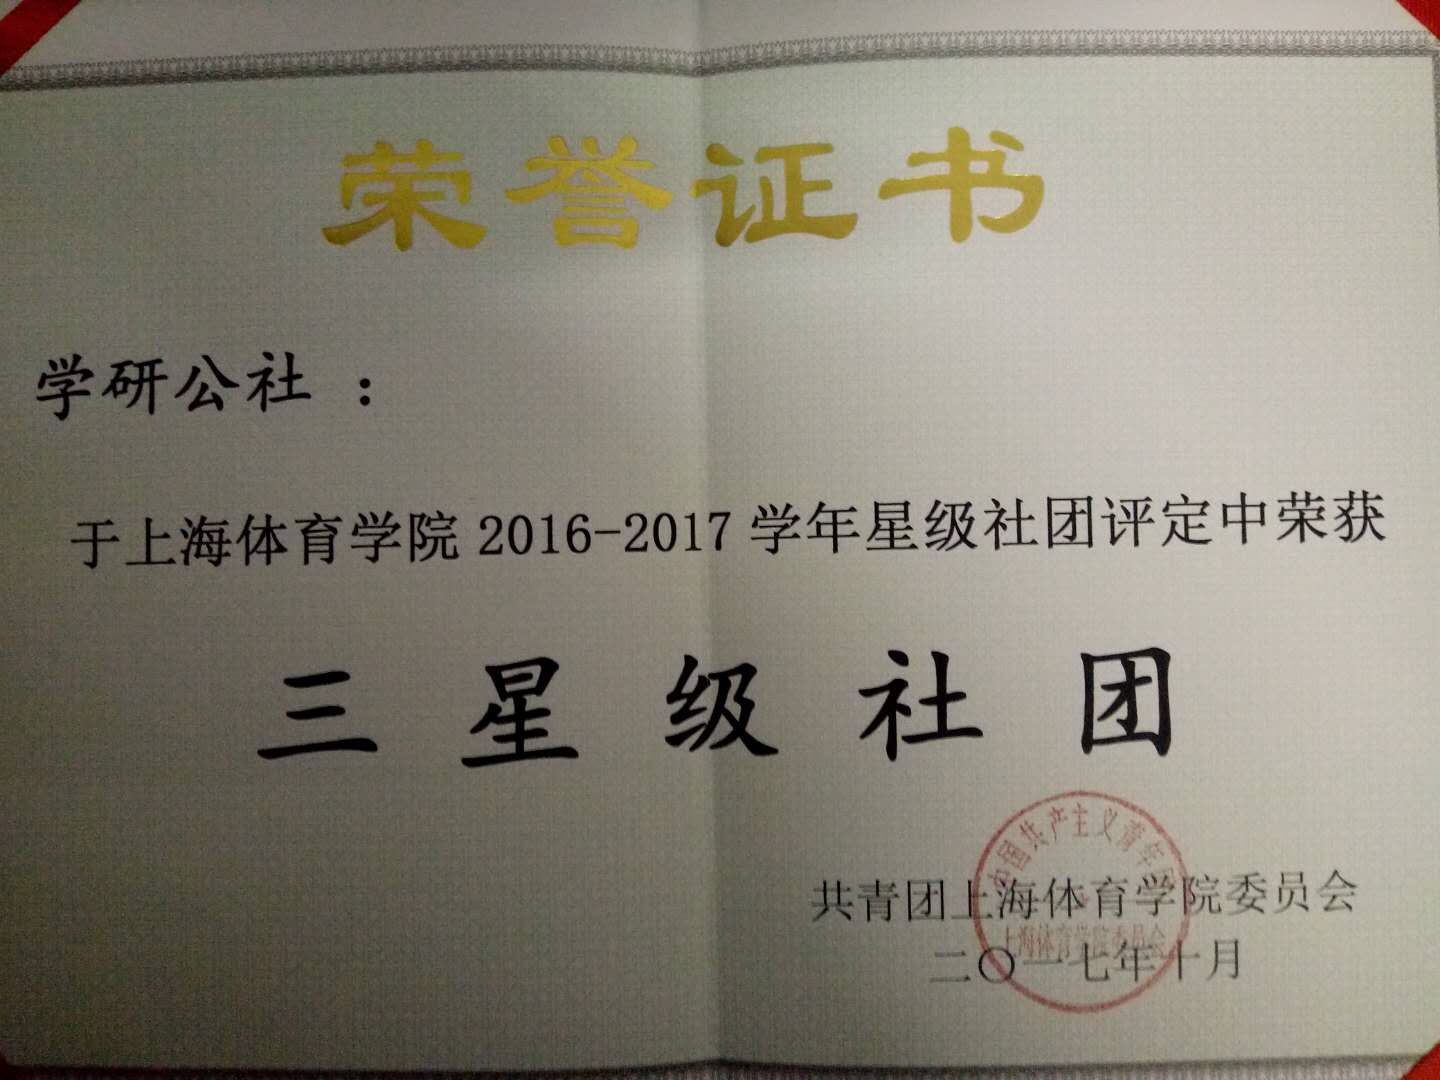 荣誉证书
学研公社：
于上海体育学院2016-2017学年星级社团评定中荣获
三星级社团
共青团上海体育学院委员会
二〇一七年十月
中国共产主义青年团
上海体育学院委员会